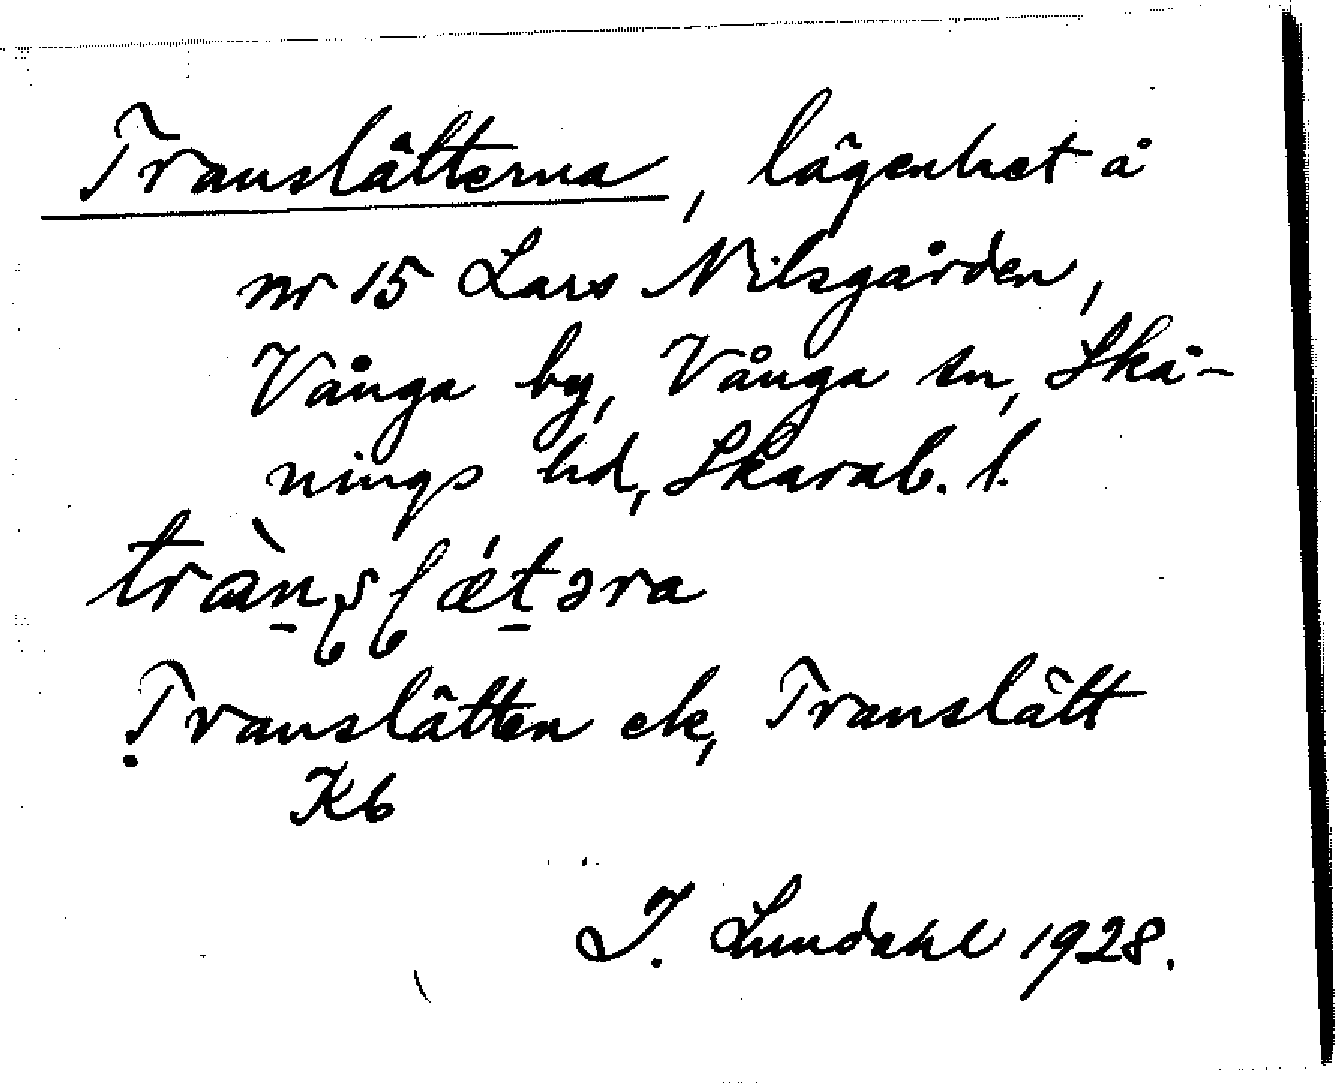 Translätterna, lägenhet å
nr 15 Lars Nilsgården,
Vånga by, Vånga sn, Skå-
nings hd, Skarab. l.
Translätten ek, Translätt
Kb
I. Lundahl 1928.